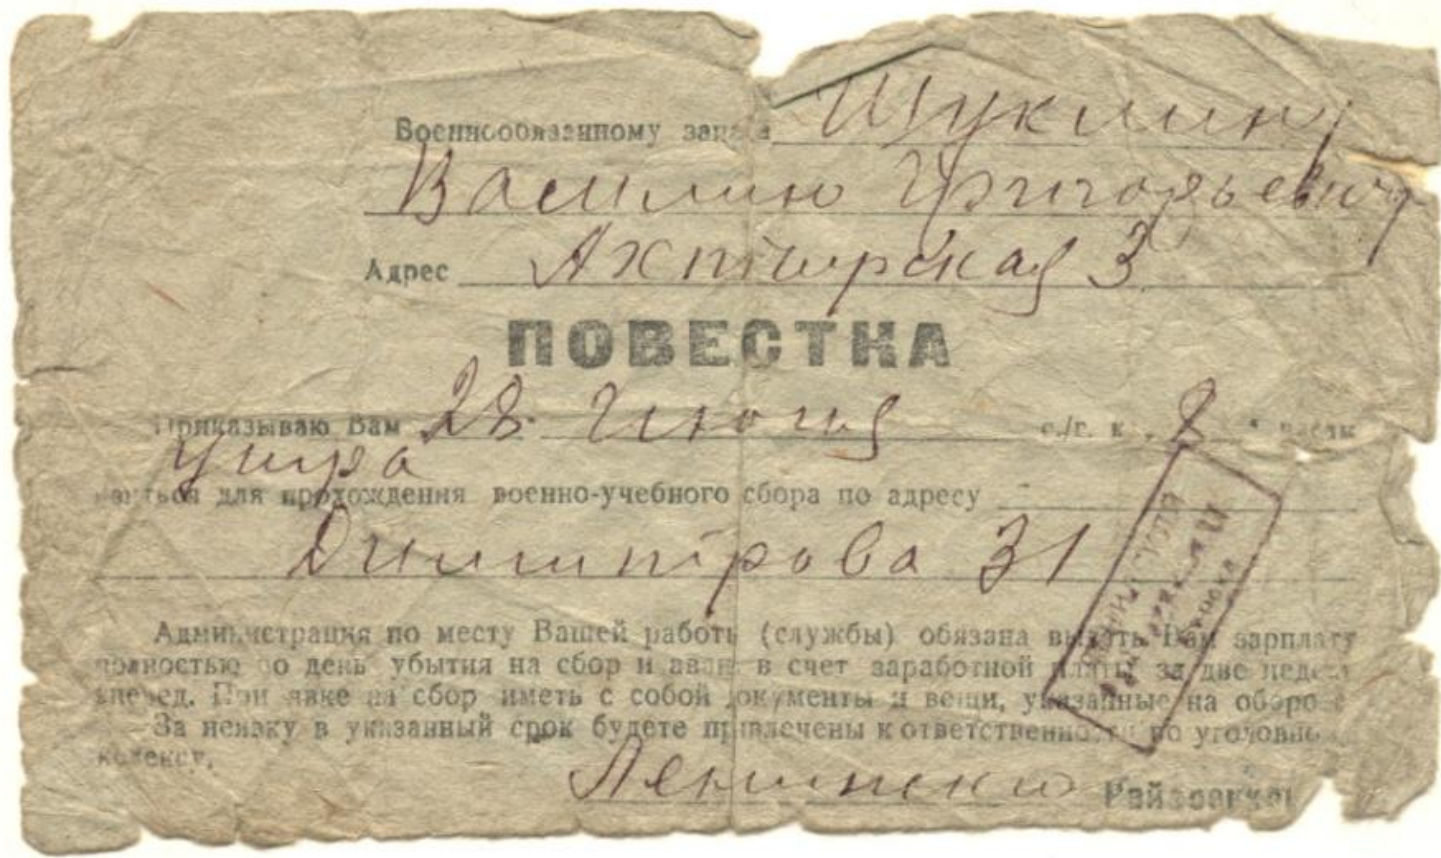 Военнообязанному запаса Щуклину
Василию Григорьевичу
Адрес Ахтырская 3
ПОВЕСТКА
Приказываю Вам 28 Июня с/г. к 8 часам
утра
явиться для прохождения военно-учебного сбора по адресу
Димитрова 31
Администрация по месту Вашей работы (службы) обязана выдать Вам зарплату
полностью по день убытия на сбор и аванс в счет заработной платы за две недели
вперед. При явке на сбор иметь с собой документы и вещи, указанные на обороте
За неявку в указанный срок будете привлечены к ответственности по уголовному
кодексу.
Райвоенком